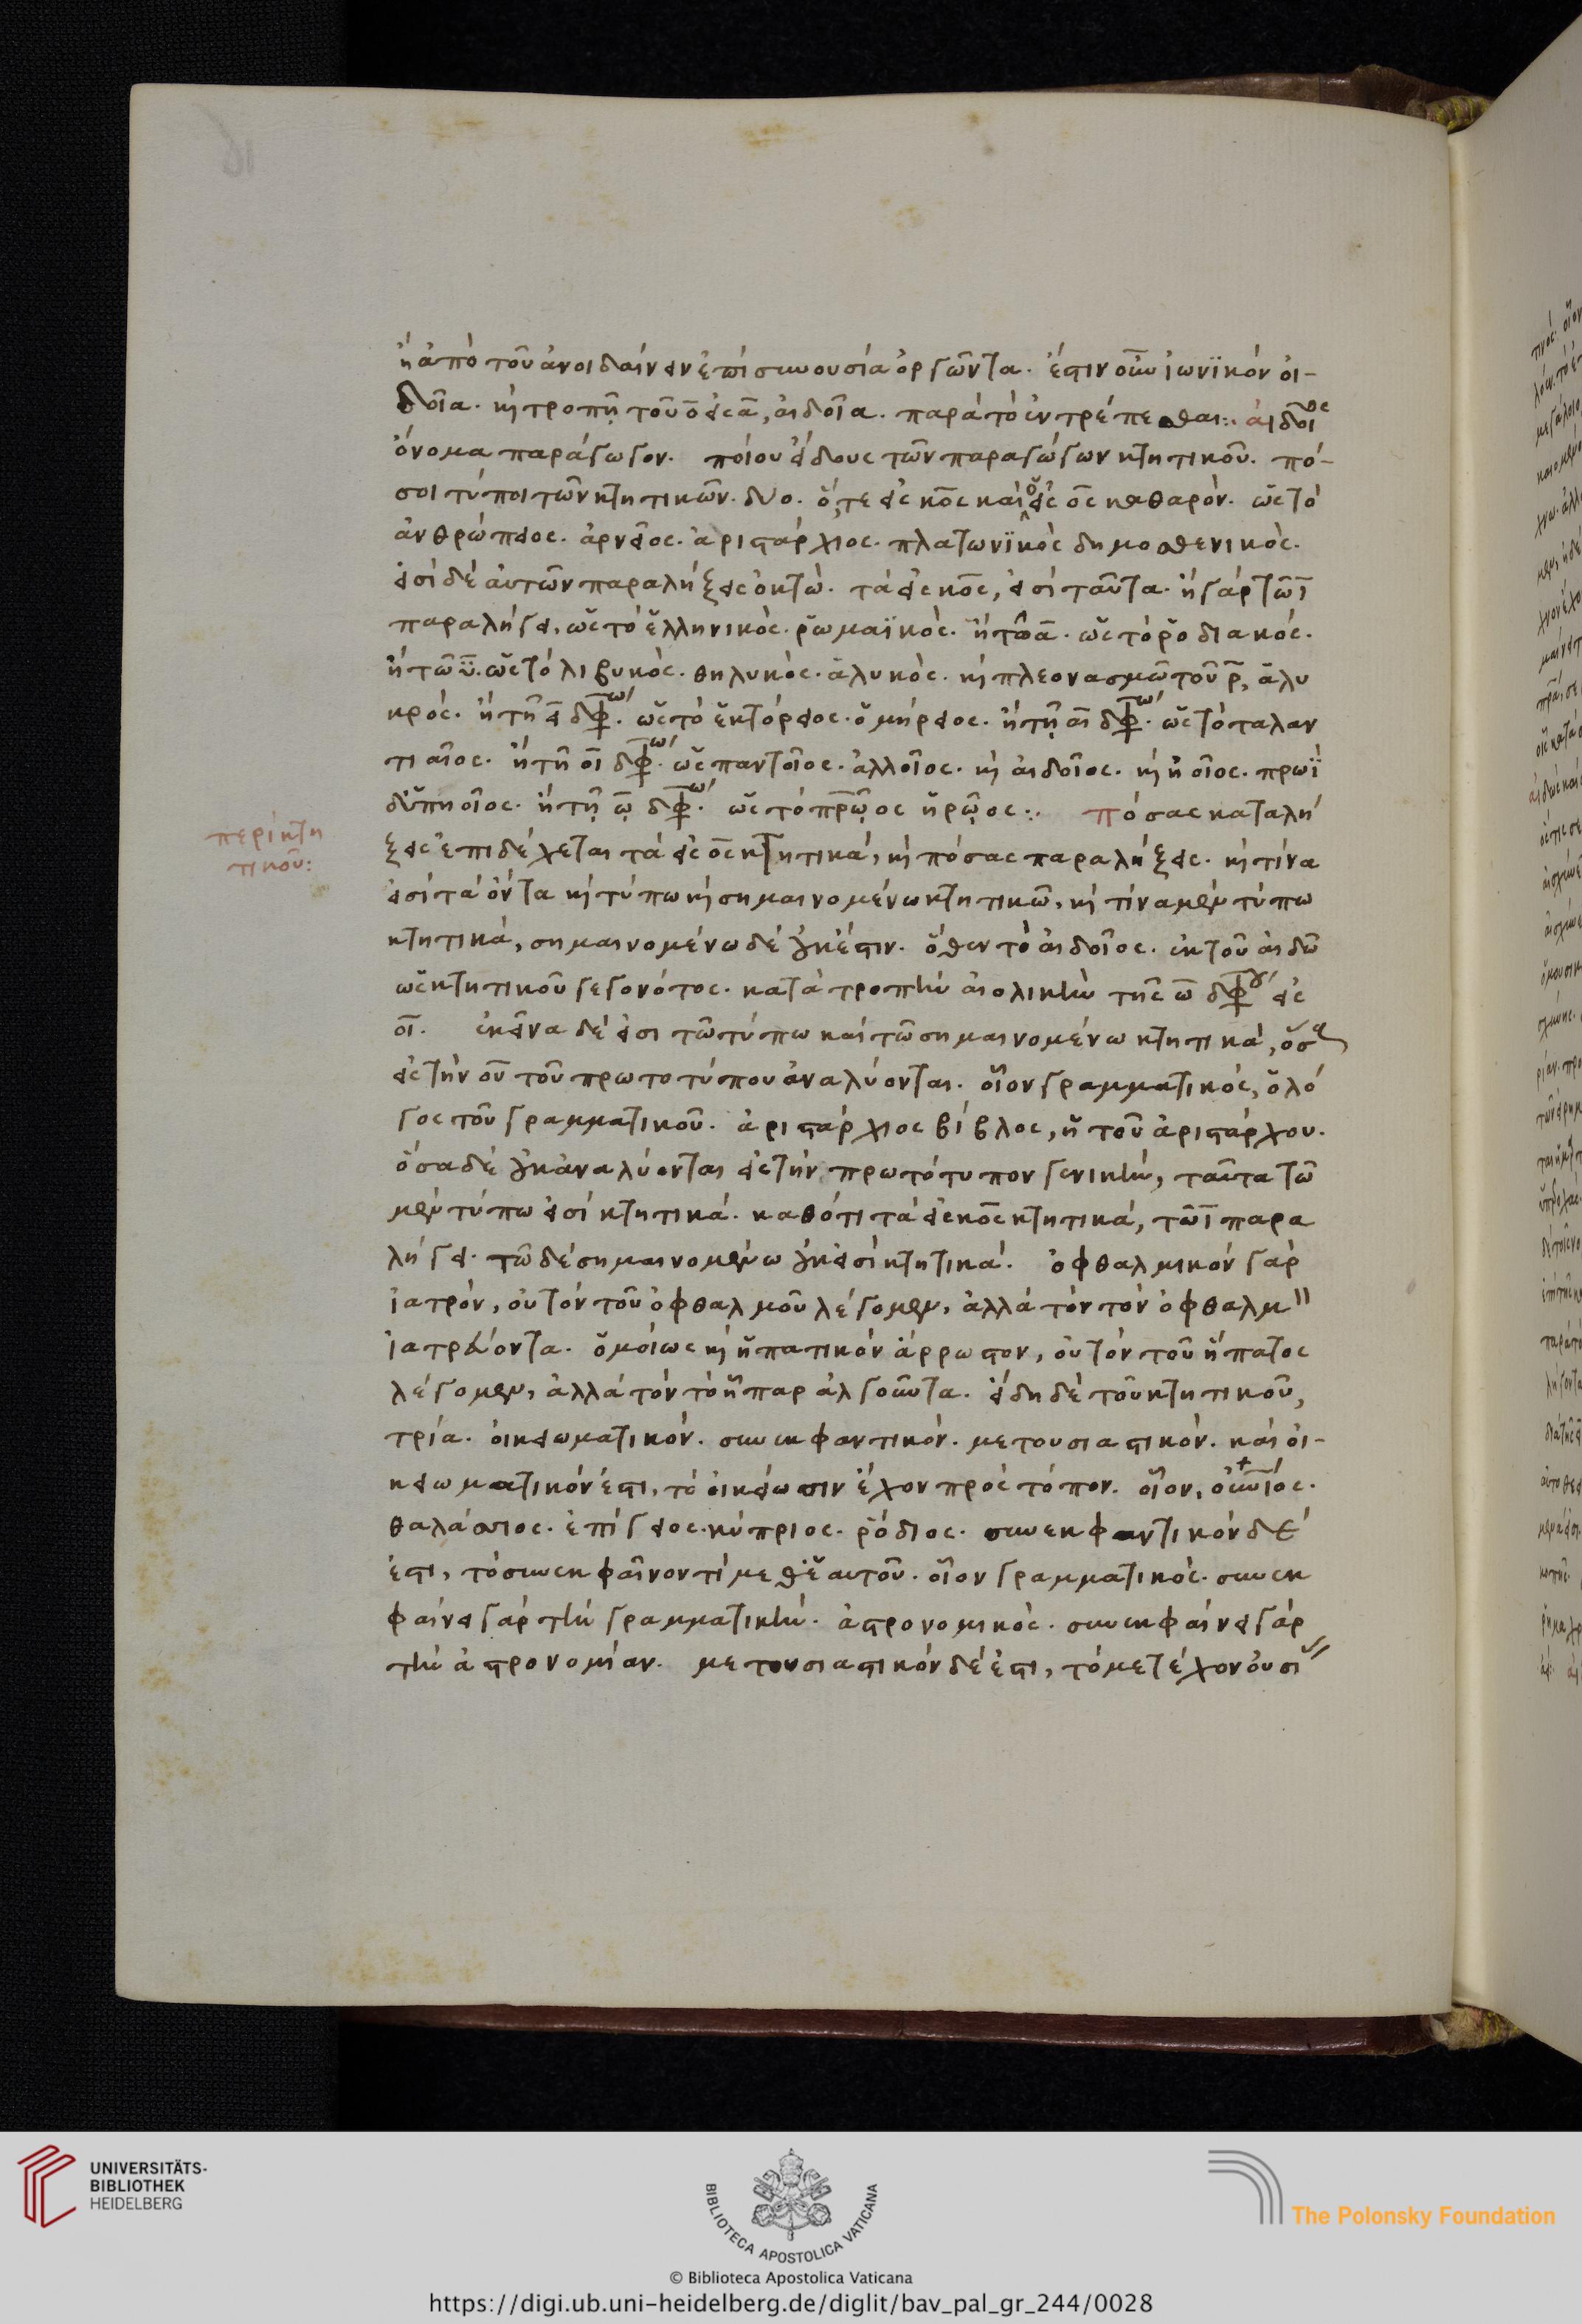 ἢ ἀπὸ τοῦ ἀνοιδαίνειν ἐπὶ συνουσία ὀργῶντα. ἔστιν οὖν ἰωνϊκὸν οἰ-
δοῖα. κὶ τροπῇ τοῦ ο εἰς α, αἰδοῖα. παρὰ τὸ ἐντρέπεσθαι:. αἰδοῖος
ὄνομα παράγωγον. ποίου εἴδους τῶν παραγώγων κτητικοῦ. πό-
σοι τύποι τῶν κτητικῶν. δύο. ὅ, τε εἰς κος καὶ ὁ εἰς ος καθαρόν. ὡς τὸ
ἀνθρώπειος. ἀρνεῖος. ἀριστάρχιος. πλατωνϊκὸς δημοσθενικὸς.
εἰσὶ δὲ αὐτῶν παραλήξεις ὀκτὼ. τὰ εἰς κος, εἰσὶ ταῦτα. ἢ γὰρ τῶ ι
παραλήγει, ὡς τὸ ἑλληνικὸς. ῥωμαϊκὸς. ἢ τῶ α. ὡς τὸ ῥοδιακός.
ἢ τῶ υ. ὡς τὸ λιβυκὸς. θηλυκὸς. ἁλυκὸς. κὶ πλεονασμῶ τοῦ ρ, ἁλυ
κρός. ἢ τῇ ει διφθόγγω. ὡς τὸ ἑκτόρειος. ὁμήρειος. ἢ τῇ αι διφθόγγω. ὡς τὸ ταλαν
τιαῖος. ἢ τῇ οι διφθόγγω. ὡς παντοῖος. ἀλλοῖος. κὶ αἰδοῖος. κὶ ἠοῖος. πρωϊ
δϋπηοῖος. ἢ τῇ ῳ διφθόγγω. ὡς τὸ πρῷος ἡρῷος:. πόσας καταλή
περὶ κτη
τικοῦ:
ξεις ἐπιδέχεται τὰ εἰς ος κτητικά, κὶ πόσας παραλήξεις. κὶ τίνα
εἰσὶ τὰ ὄντα κὶ τύπω κὶ σημαινομένω κτητικῶ, κὶ τίνα μὲν τύπω
κτητικά, σημαινομένω δὲ οὐκ ἔστιν. ὅθεν τὸ αἰδοῖος. ἐκ τοῦ αἰδῶ
ὡς κτητικοῦ γεγονότος. κατὰ τροπὴν αἰολικὴν τῆς ω διφθόγγου εἰς
οι. ἐκεῖνα δέ εἰσι τῶ τύπω καὶ τῶ σημαινομένω κτητικά, ὅσα
εἰς τὴν ου τοῦ πρωτοτύπου ἀναλύονται. οἷον γραμματικός, ὁ λό
γος τοῦ γραμματικοῦ. ἀριστάρχιος βίβλος, ἡ τοῦ ἀριστάρχου.
ὅσα δὲ οὐκ ἀναλύονται εἰς τὴν πρωτότυπον γενικὴν, ταῦτα τῶ
μὲν τύπω εἰσὶ κτητικά. καθότι τὰ εἰς κος κτητικά, τῶ ι παρα
λήγει. τῶ δὲ σημαινομένω οὐκ εἰσὶ κτητικά. ὀφθαλμικὸν γὰρ
ἰατρόν, οὐ τὸν τοῦ ὀφθαλμοῦ λέγομεν, ἀλλὰ τὸν τὸν ὀφθαλμὸν
ἰατρεύοντα. ὁμοίως κὶ ἡπατικὸν ἄρρωστον, οὐ τὸν τοῦ ἥπατος
λέγομεν, ἀλλὰ τὸν τὸ ἧπαρ ἀλγοῦντα. εἴδη δὲ τοῦ κτητικοῦ,
τρία. οἰκειωματικόν. συνεκφαντικόν. μετουσιαστικόν. καὶ οἰ-
κειωματικόν ἐστι, τὸ οἰκείωσιν ἔχον πρὸς τόπον. οἷον,
θαλάσσιος. ἐπίγειος. κύπριος. ῥόδιος. συνεκφαντικὸν δέ
ἐστι, τὸ συνεκφαῖνον τὶ μεθ' ἑαυτοῦ. οἷον γραμματικός. συνεκ
φαίνει γὰρ τὴν γραμματικὴν. ἀστρονομικὸς. συνεκφαίνει γὰρ
τὴν ἀστρονομίαν. μετουσιαστικὸν δέ ἐστι, τὸ μετέχον οὐσι
UNIVERSITÄTS-
BIBLIOTHEK
HEIDELBERG
BIBLIOTECA APOSTOLICA VATICANA
The Polonsky Foundation
© Biblioteca Apostolica Vaticana
https://digi.ub.uni-heidelberg.de/diglit/bav_pal_gr_244/0028